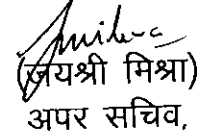 (जयश्री मिश्रा)
अपर सचिव.